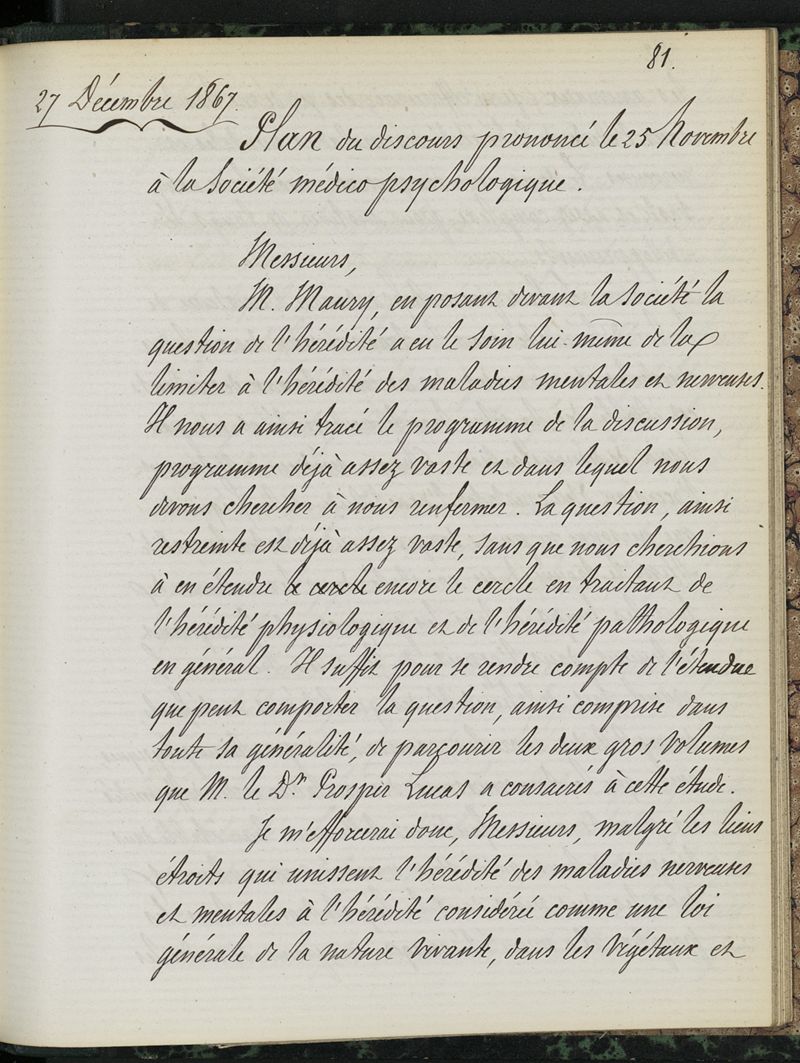 81.
27 Décembre 1867.
Plan du discours prononcé le 25 Novembre
à la Société médico psychologique.
Messieurs,
M. Maury, en posant devant la Société la
question de l'hérédité a eu le soin lui-même de la
limiter à l'hérédité des maladies mentales et nerveuses.
Il nous a ainsi tracé le programme de la discussion,
programme déjà assez vaste et dans lequel nous
devons chercher à nous renfermer. La question, ainsi
restreinte est déjà assez vaste, sans que nous cherchions
à en étendre le cercle encore le cercle en traitant de
l'hérédité physiologique et de l'hérédité pathologique
en général. Il suffit pour se rendre compte de l'étendue
que peut comporter la question, ainsi comprise dans
toute sa généralité, de parcourir les deux gros volumes
que M. le Dr. Prosper Lucas a consacrés à cette étude.
Je m'efforcerai donc, Messieurs, malgré les liens
étroits qui unissent l'hérédité des maladies nerveuses
et mentales à l'hérédité considérée comme une loi
générale de la nature vivante, dans les végétaux et